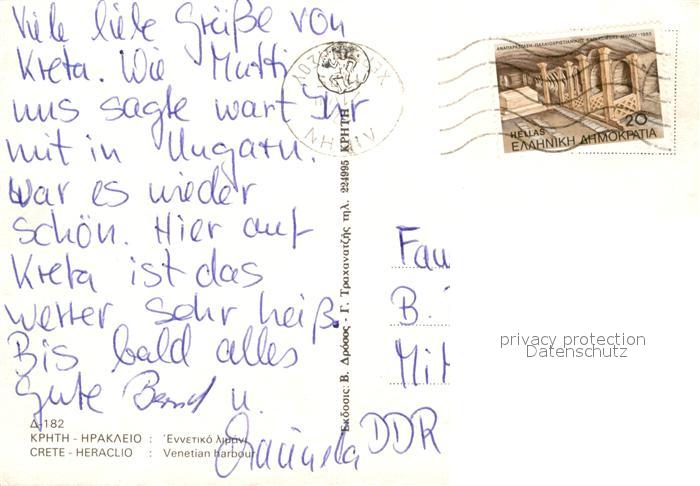 Viele liebe Grüße von
Kreta. Wie Mutti
uns sagte wart Ihr
mit in Ungarn.
War es wieder
schön. Hier auf
Kreta ist das
Wetter sehr heiß.
Bis bald alles
Gute Bernd u.
Δ-182
ΚΡΗΤΗ - ΗΡΑΚΛΕΙΟ : Ἐννετικό λιμάνι
CRETE - HERACLIO : Venetian harbour
Ἐκδοσις: Β. Δρόσος - Γ. Τραχανατζής τηλ. 224995 ΚΡΗΤΗ
ΑΝΑΠΑΡΑΣΤΑΣΗ ΠΑΛΑΙΟΧΡΙΣΤΙΑΝΙΚΗΣ ΚΑΤΑΚΟΜΒΗΣ ΜΗΛΟΥ - 1985
20
HELLAS
ΕΛΛΗΝΙΚΗ ΔΗΜΟΚΡΑΤΙΑ
Fam
B.
Mit
DDR
privacy protection
Datenschutz